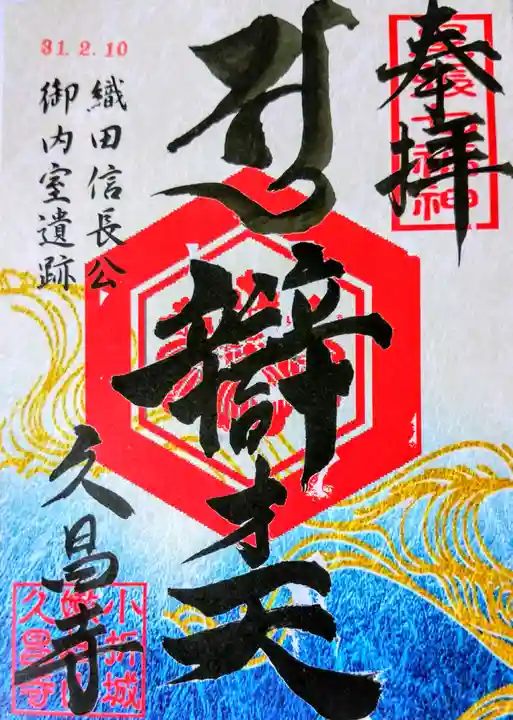 奉拝
辯才天
31.2.10
織田信長公
御内室遺跡
久昌寺
小折城
久昌寺